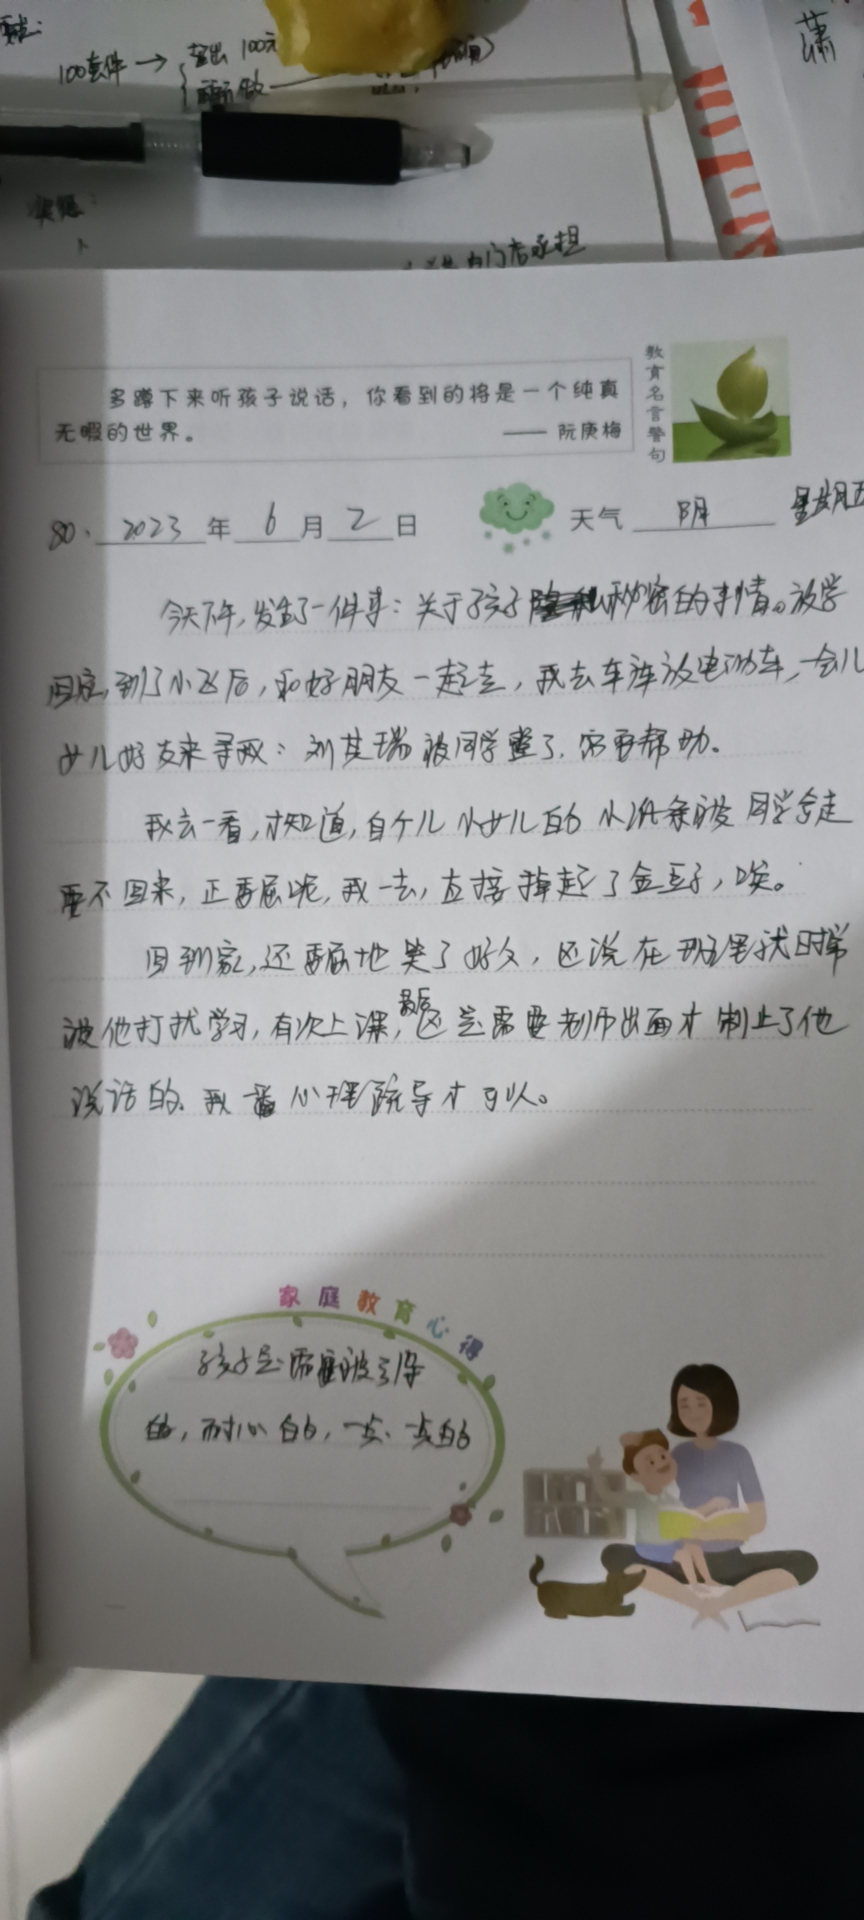 100套件 → { 卖出 100元
实施:
门店承担
潇
多蹲下来听孩子说话，你看到的将是一个纯真
无暇的世界。 —— 阮庚梅
教育名言警句
80、 2023 年 6 月 2 日 天气 阴 星期五
今天下午，发生了一件事：关于孩子秘密的事情。放学
回家，到了小区后，和好朋友一起走，我去车库放电动车，一会儿
女儿好友来寻我：刘芸瑞被同学整了，需要帮助。
我去一看，才知道，自个儿小女儿的小纸条被同学拿走
要不回来，正委屈呢，我一去，直接掉起了金豆子，唉。
回到家，还委屈地哭了好久，还说在班里就时常
被他打扰学习，有次上课，最后还是需要老师出面才制止了他
说话的、我一番心理疏导才可以。
家庭教育心得
孩子是需要被引导
的，耐心的，一点、一点的